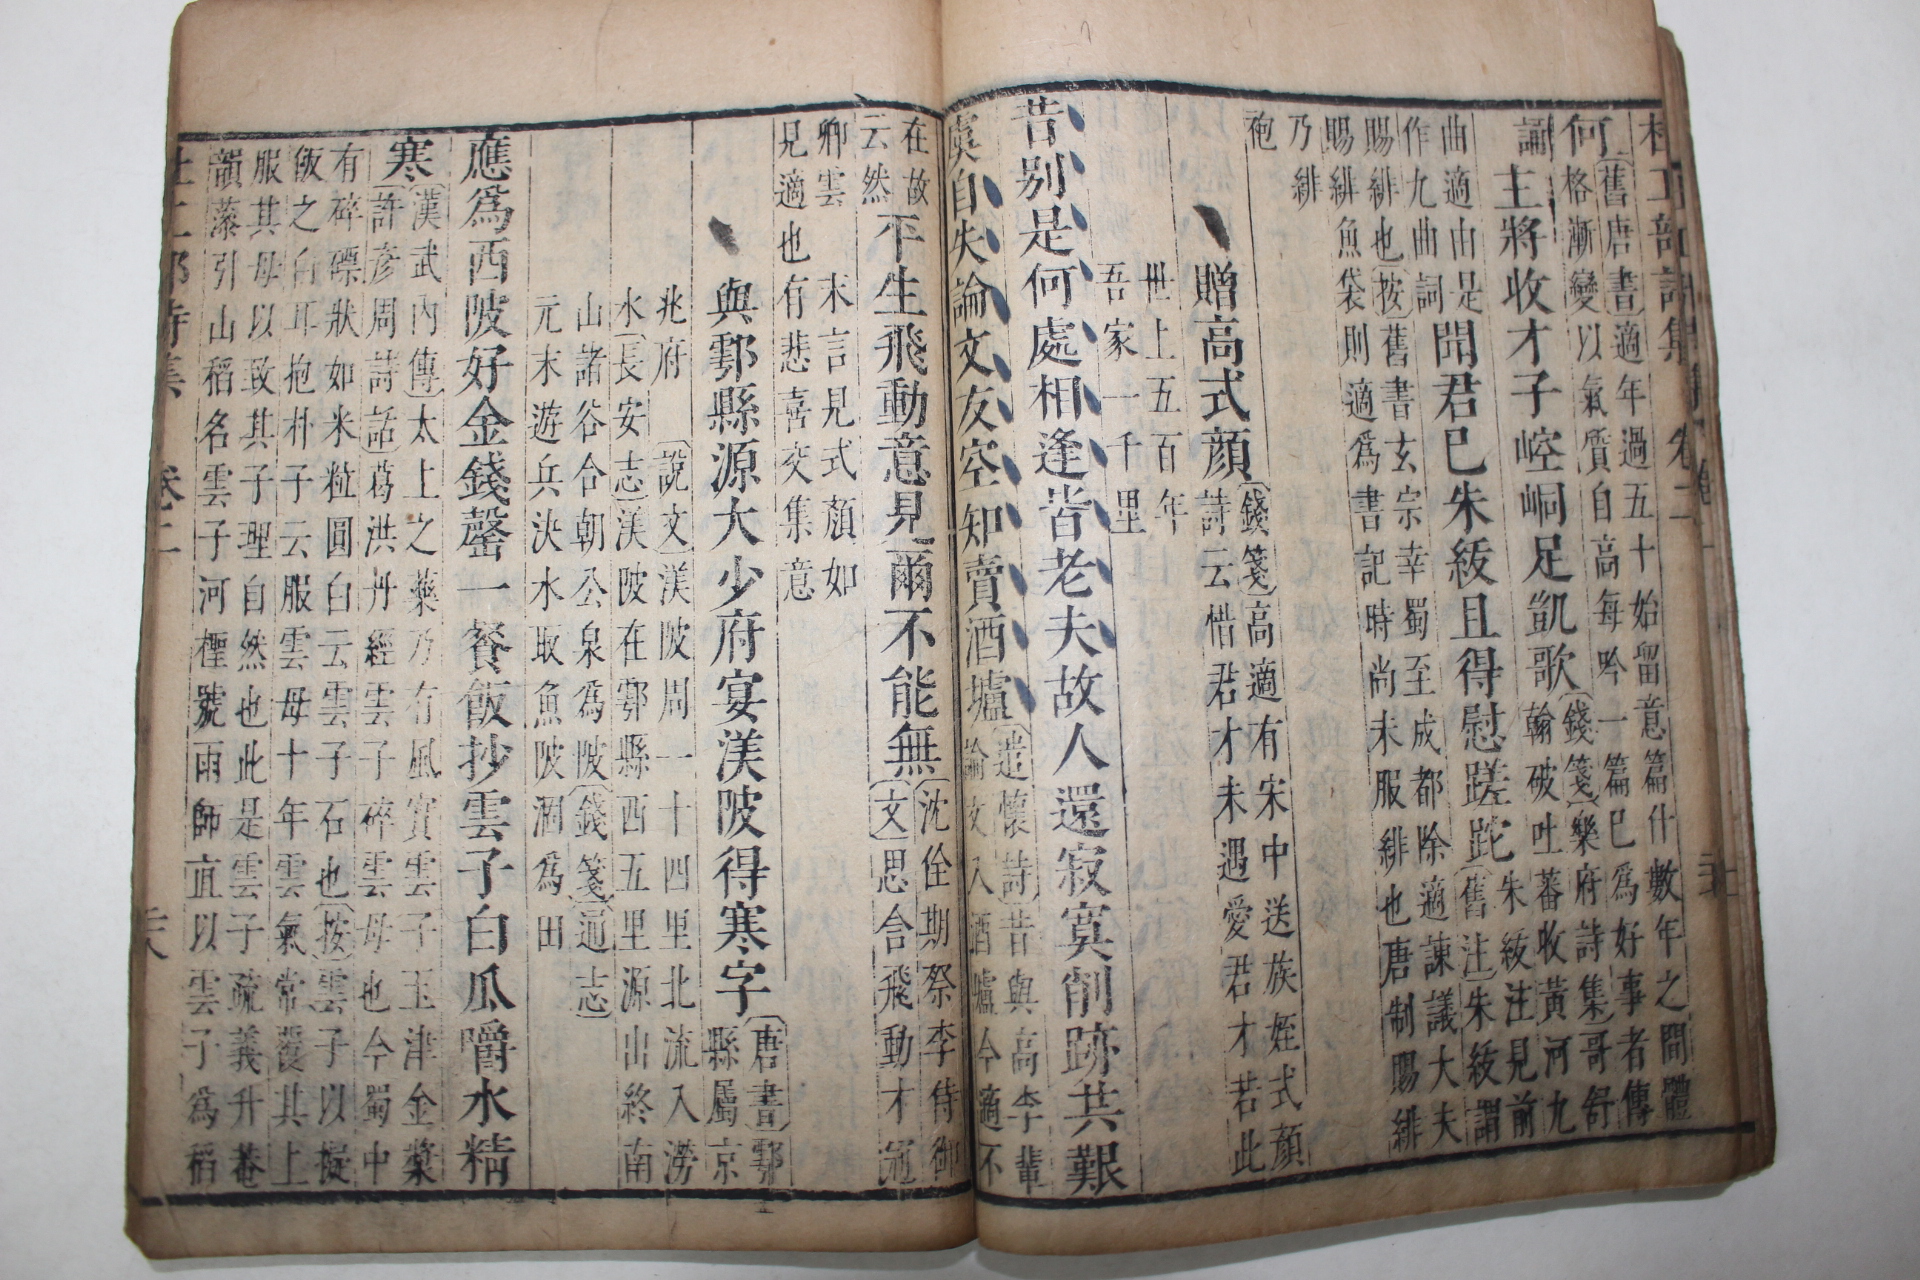 杜工部詩集 卷二
何〔舊唐書〕適年過五十始留意篇什數年之間體
格漸變以氣質自高每吟一篇巳爲好事者傳
誦 主將收才子崆峒足凱歌〔錢箋〕樂府詩集哥舒
翰破吐蕃收黃河九
曲適由是
作九曲詞
聞君巳朱紱且得慰蹉跎
朱紱注見前
〔舊注〕朱紱謂
賜緋也〔按〕舊書玄宗幸蜀至成都除適諫議大夫
賜緋魚袋則適爲書記時尚未服緋也唐制賜緋
乃緋
袍
贈高式顏
〔錢箋〕高適有宋中送族姪式顏
詩云惜君才未遇愛君才若此
世上五百年
吾家一千里
昔別是何處相逢皆老夫故人還寂寞削跡共艱
虞自失論文友空知賣酒壚
〔遣懷詩〕昔與高李輩
論交入酒壚今適不
在故
云然
平生飛動意見爾不能無
〔沈佺期祭李侍御
文〕思含飛動才冠
卿雲 末言見式顏如
見適也有悲喜交集意
與鄠縣源大少府宴渼陂得寒字
〔唐書〕鄠
縣屬京
兆府 〔說文〕渼陂周一十四里北流入澇
水〔長安志〕渼陂在鄠縣西五里源出終南
山諸谷合朝公泉爲陂〔錢箋〕〔通志〕
元末遊兵決水取魚陂涸爲田
應爲西陂好金錢罄一餐飯抄雲子白瓜嚼水精
寒
〔漢武內傳〕太上之藥乃有風實雲子玉津金漿
〔許彥周詩話〕葛洪丹經雲子碎雲母也今蜀中
有碎磲狀如米粒圓白云雲子石也〔按〕雲子以擬
飯之白耳抱朴子云服雲母十年雲氣常覆其上
服其母以致其子理自然也此是雲子疏義升菴
韻藻引山稻名雲子河檉號雨師直以雲子爲稻
杜工部詩集 卷二